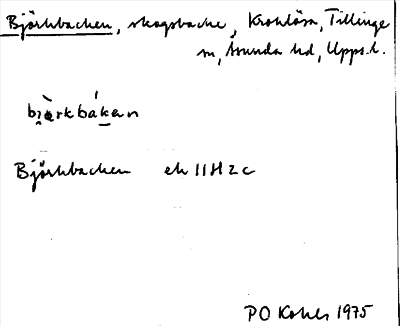 Björkbacken, skogsbacke, Krohlösa, Tillinge
sn, Åsunda hd, Upps. l.
bjò̀rkbákan
Björkbacken ek 11H2c
PO Kohls 1975